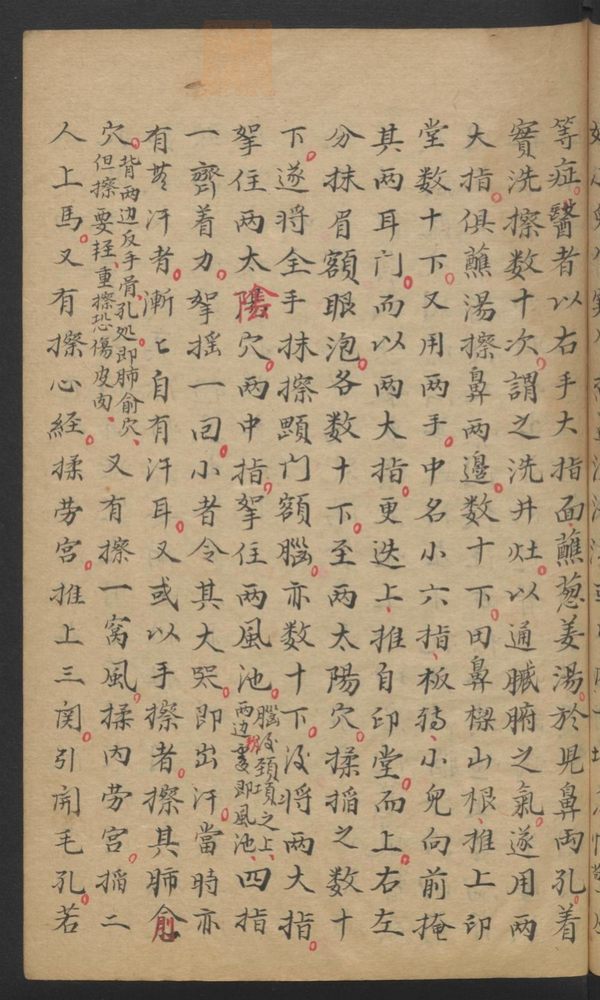 等症。醫者以右手大指面、蘸葱姜湯。於児鼻両孔。着
實洗擦数十次。謂之洗井灶。以通臟腑之氣。遂用两
大指。俱蘸湯擦鼻两邊。数十下。田鼻樑山根、推上印
堂数十下。又用两手。中名小六指、板待、小兒向前掩
其两耳门。而以两大指。更迭上、推自印堂。而上。右左
分抹眉額眼泡。各数十下。至两太陽穴。揉搯之数十
下。遂将全手抹擦顖门額腦。亦数十下。後将两大指。
拏住两太陽穴。两中指。拏住两風池。腦後頚項之上、两边夏即風池、四指
一齊着力。拏摇一回。小者令其大哭。即出汗。當時亦
有無汗者。漸〻自有汗耳。又或以手擦者。擦其肺俞
穴。背两边反手骨、孔处即肺俞穴、但擦要轻、重擦恐傷皮肉、又有擦一窩風。揉内劳宫。搯二
人上馬。又有擦心経。揉劳宫。推上三関。引開毛孔。若